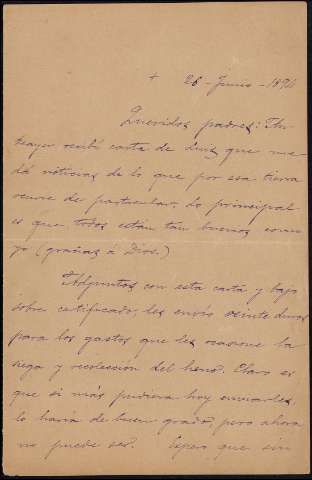 + 26 - Junio - 1894
Queridos padres: An-
teayer recibí carta de Luis que me
dá noticias de lo que por esa tierra
ocurre de particular, lo principal
es que todos están tan buenos como
yo (gracias á Dios.)
Adjuntos con esta carta y bajo
sobre certificado, les envio veinte duros
para los gastos que les ocasione la
siega y recolección del heno. Claro es
que si más pudiera hoy enviarles,
lo haría de buen grado, pero ahora
no puede ser. Espero que sin